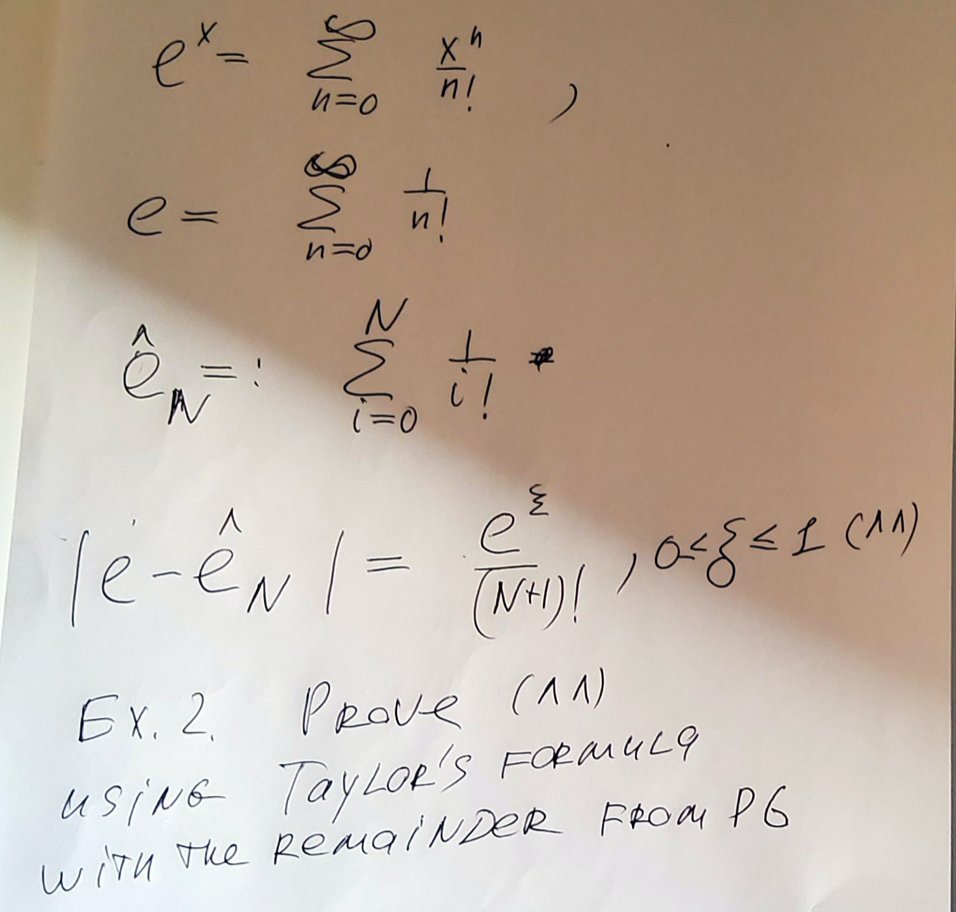 e^x = ∑_{n=0}^{∞} x^n/n! ,
e = ∑_{n=0}^{∞} 1/n!
ê_N =: ∑_{i=0}^{N} 1/i!
|e - ê_N| = e^ξ/(N+1)! , 0<ξ≤1 (11)
Ex. 2. Prove (11)
using Taylor's formula
with the remainder from PG